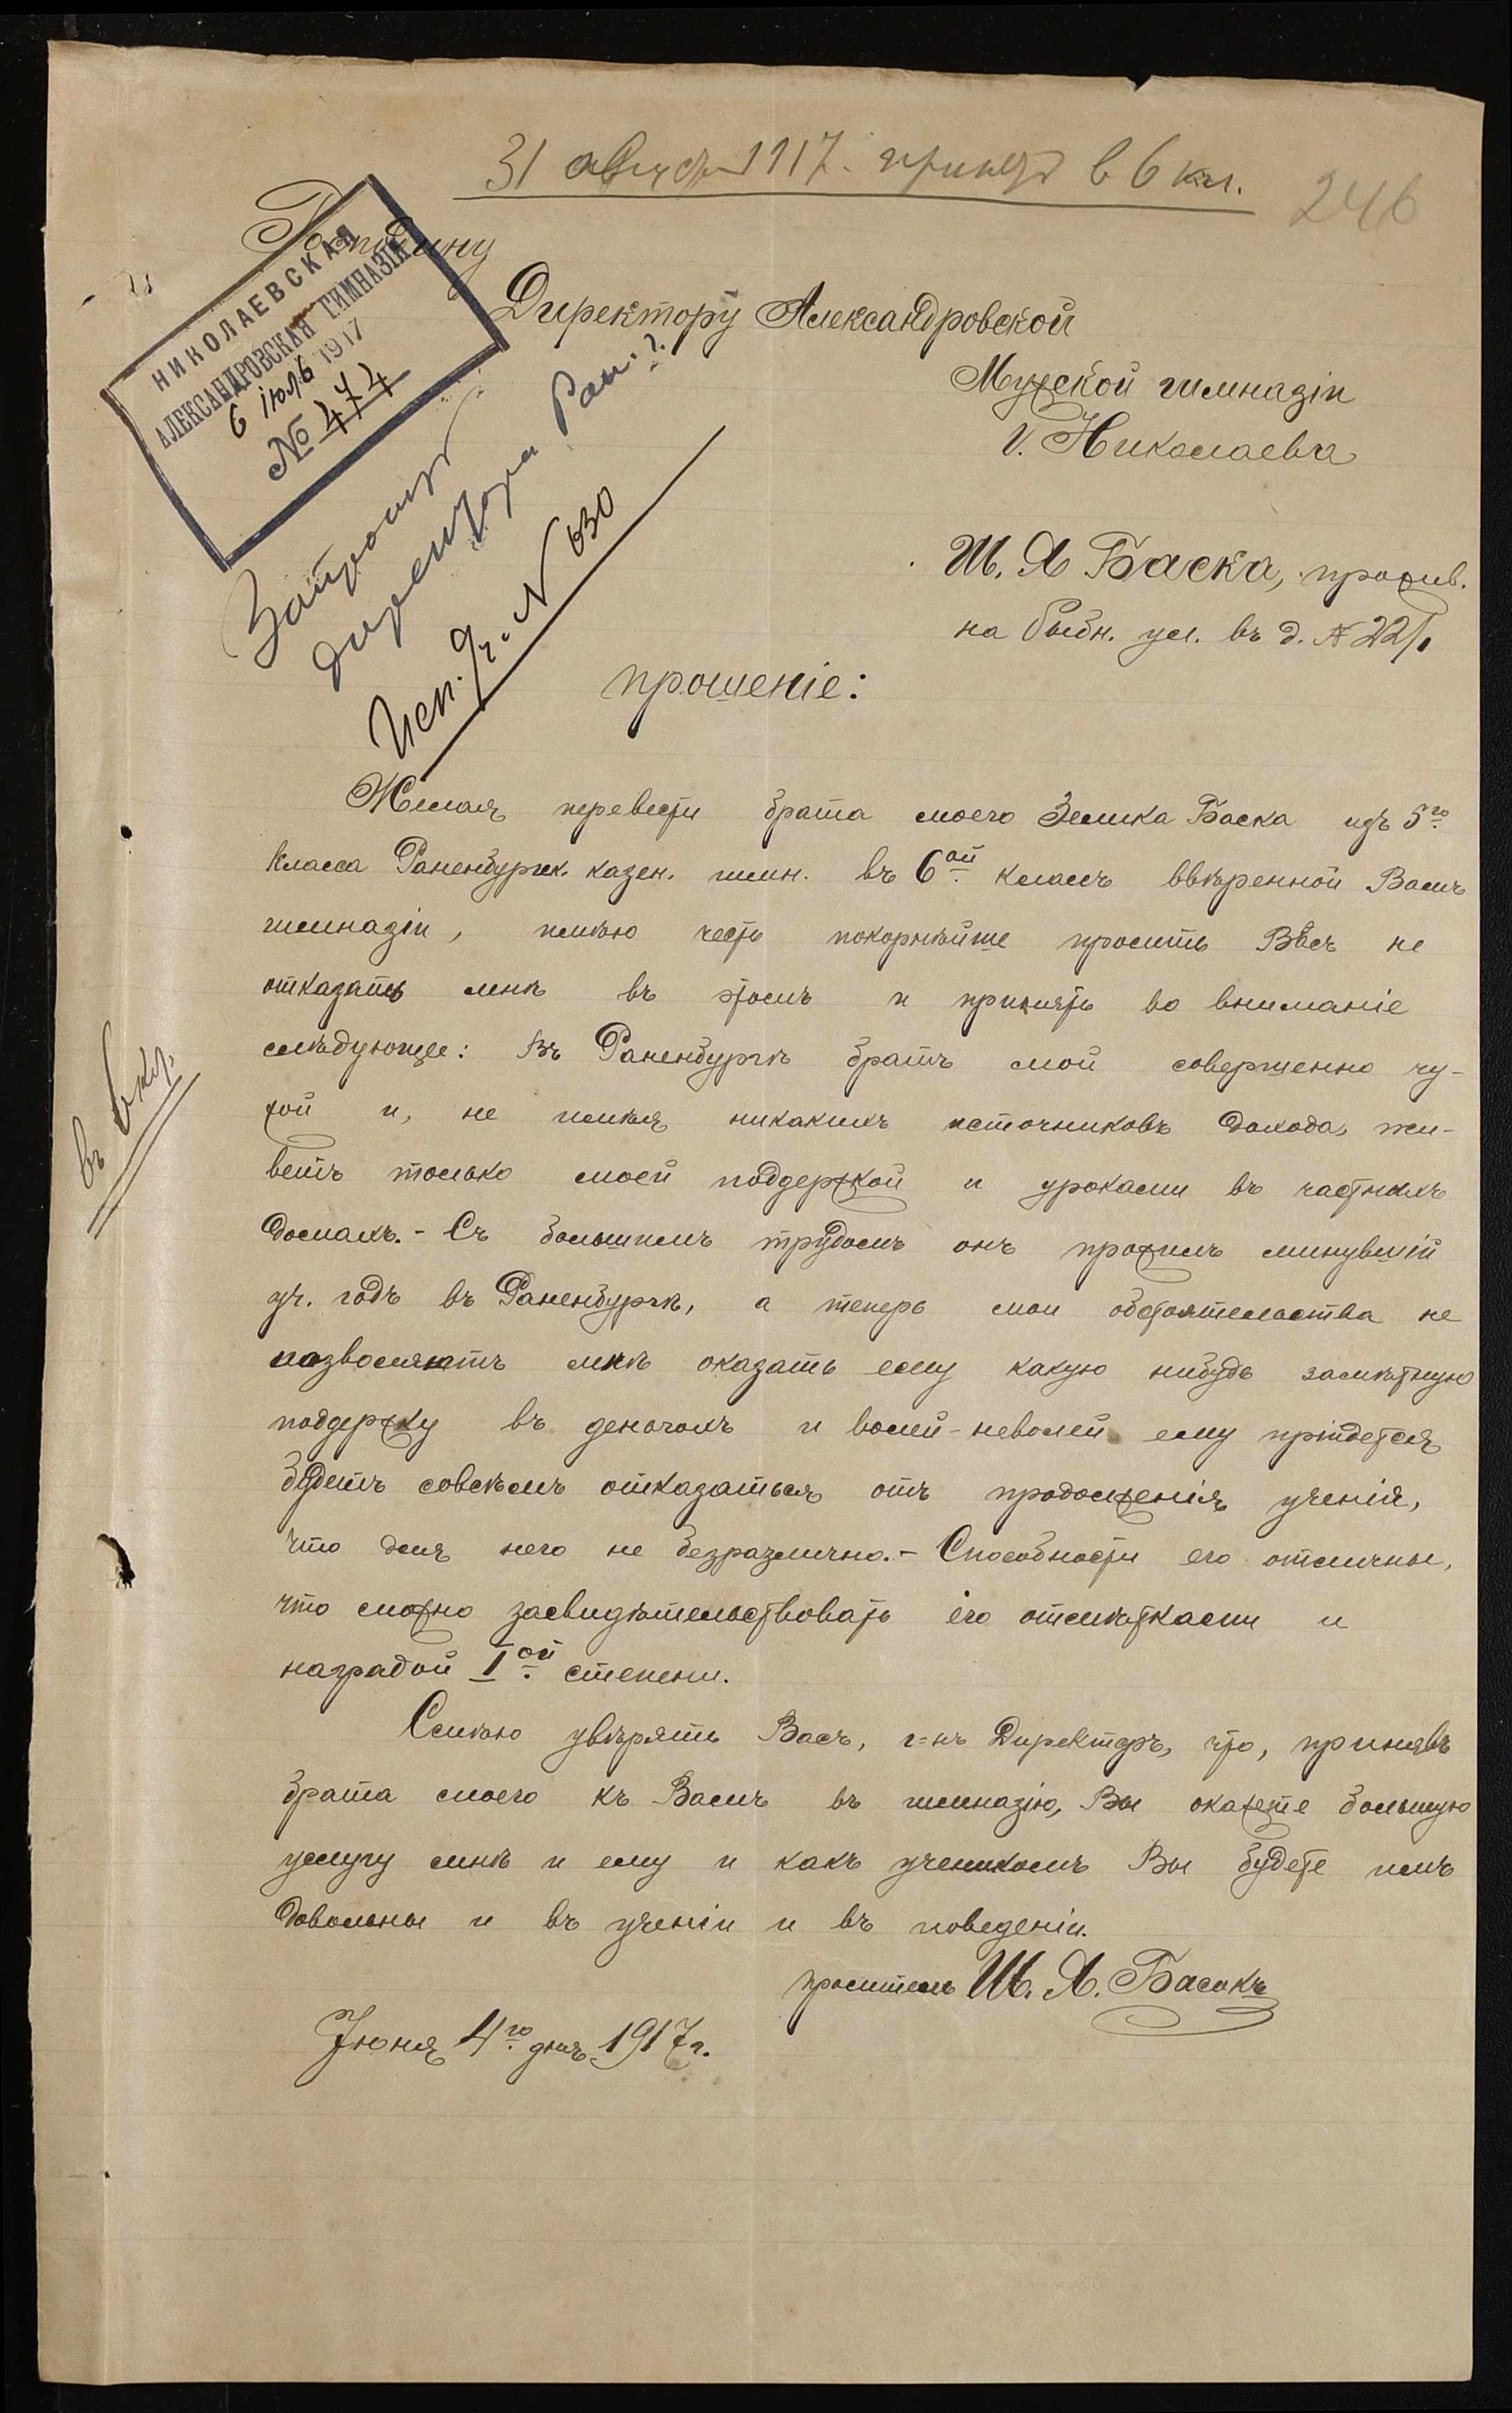 31 августа 1917. принят в 6 кл.
246
Господину
НИКОЛАЕВСКАЯ
АЛЕКСАНДРОВСКАЯ ГИМНАЗІЯ
6 іюл6 1917
№ 474
Директору Александровской
Мужской гимназіи
г. Николаева
Запросить
директора Ран. г.
Исп. № 630
Ш. Я Баска, прожив.
на Рыбн. ул. въ д. № 22/1
прошеніе:
Желая перевести брата моего Зелика Баска изъ 5го
класса Раненбургск. казен. гимн. въ 6ой классъ ввѣренной Вамъ
гимназіи, имѣю честь покорнѣйше просить Васъ не
отказать мнѣ въ этомъ и принять во вниманіе
слѣдующее: Въ Раненбургѣ братъ мой совершенно чу-
жой и, не имѣя никакихъ источниковъ дохода, жи-
ветъ только моей поддержкой и уроками въ частныхъ
домахъ. - Съ большимъ трудомъ онъ прожилъ минувшій
уч. годъ въ Раненбургѣ, а теперь мои обстоятельства не
позволяютъ мнѣ оказать ему какую нибудь замѣтную
поддержку въ деньгахъ и волей-неволей ему прійдется
будетъ совсѣмъ отказаться отъ продолженія ученія,
что для него не безразлично. - Способности его отличны,
что можно засвидѣтельствовать его отмѣтками и
наградой Iой степени.
Смѣю увѣрять Васъ, г=нъ Директоръ, что, принявъ
брата моего къ Вамъ въ гимназію, Вы окажете большую
услугу мнѣ и ему и какъ ученикомъ Вы будете имъ
довольны и въ ученіи и въ поведеніи.
проситель Ш. Я. Басокъ
Іюня 4го дня 1917 г.